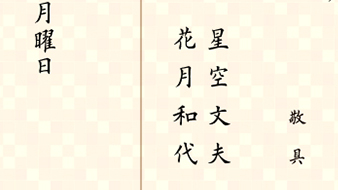 敬具
星空文夫
花月和代
月曜日